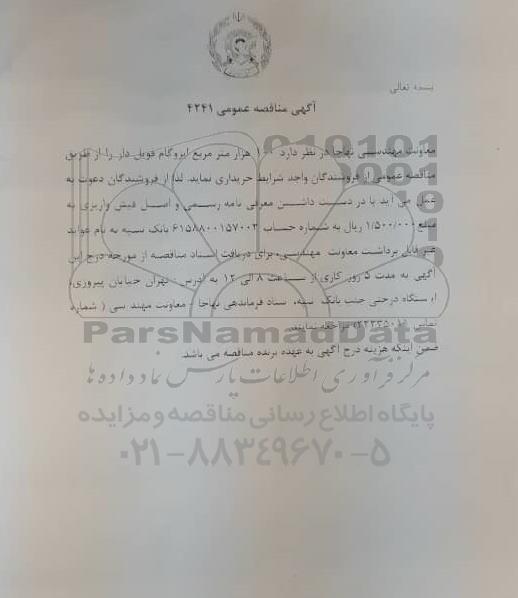 بسمه تعالی
آگهی مناقصه عمومی ۴۲۴۱
معاونت مهندسی نهاجا در نظر دارد ۱۰۰ هزار متر مربع ایزوگام فویل دار را از طریق
مناقصه عمومی از فروشندگان واجد شرایط خریداری نماید. لذا از فروشندگان دعوت به
عمل می آید با در دست داشتن معرفی نامه رسمی و اصل فیش واریزی به
مبلغ ۱/۵۰۰/۰۰۰ ریال به شماره حساب ۶۱۵۸۸۰۰۱۵۷۰۰۲ بانک سپه به نام عواید
غیر قابل برداشت معاونت مهندسی، برای دریافت اسناد مناقصه از مورخه درج این
آگهی به مدت ۵ روز کاری از ساعت ۸ الی ۱۲ به آدرس: تهران خیابان پیروزی،
ایستگاه درختی جنب بانک سپه، ستاد فرماندهی نهاجا - معاونت مهندسی ( شماره
تماس مراجعه نمایند.
ضمن اینکه هزینه درج آگهی به عهده برنده مناقصه می باشد.
ParsNamadData
مرکز فرآوری اطلاعات پارس نماد داده ها
پایگاه اطلاع رسانی مناقصه و مزایده
۰۲۱-۸۸۳۴۹۶۷۰-۵